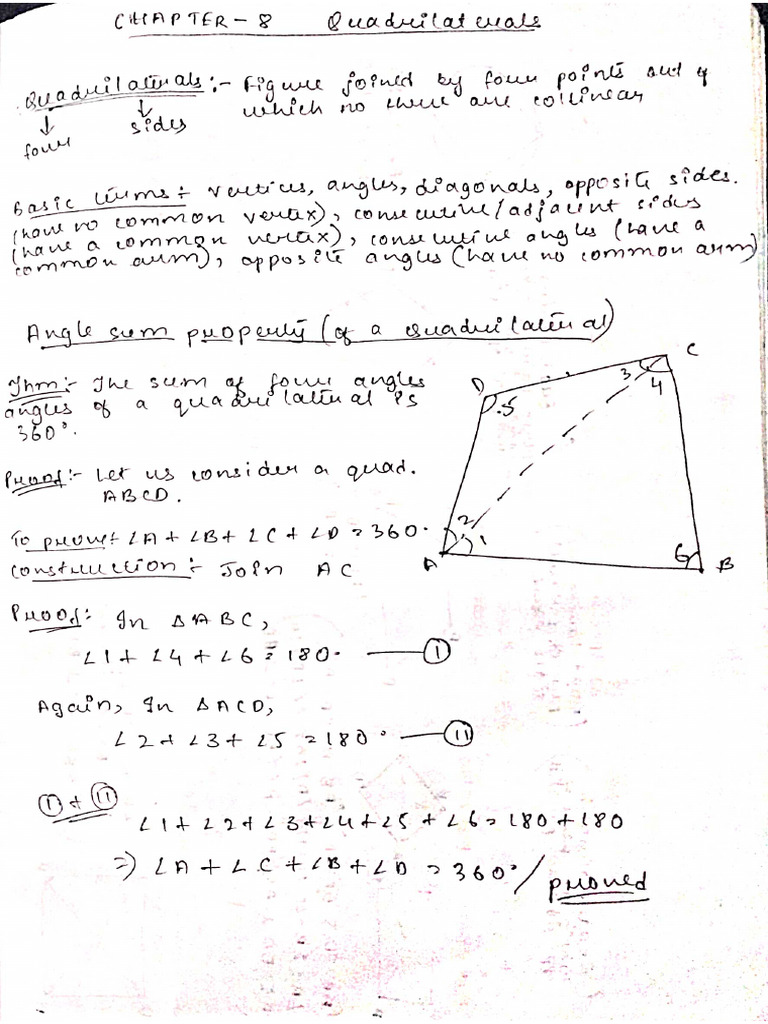 CHAPTER - 8 Quadrilaterals
Quadrilaterals :- Figure joined by four points out of
which no three are collinear
↓ ↓
four sides
Basic terms :- vertices, angles, diagonals, opposite sides.
(have no common vertex), consecutive/adjacent sides
(have a common vertex), consecutive angles (have a
common arm), opposite angles (have no common arm)
Angle sum property (of a Quadrilateral)
Thm:- The sum of four angles
angles of a quadrilateral is
360°.
Proof:- Let us consider a quad.
ABCD.
To prove:- ∠A + ∠B + ∠C + ∠D = 360°
Construction :- Join AC
D C
3 4
5
2 1
6
A B
Proof: In ΔABC,
∠1 + ∠4 + ∠6 = 180° — (I)
Again, In ΔACD,
∠2 + ∠3 + ∠5 = 180° — (II)
(I) + (II)
∠1 + ∠2 + ∠3 + ∠4 + ∠5 + ∠6 = 180 + 180
=) ∠A + ∠C + ∠B + ∠D = 360° / proved